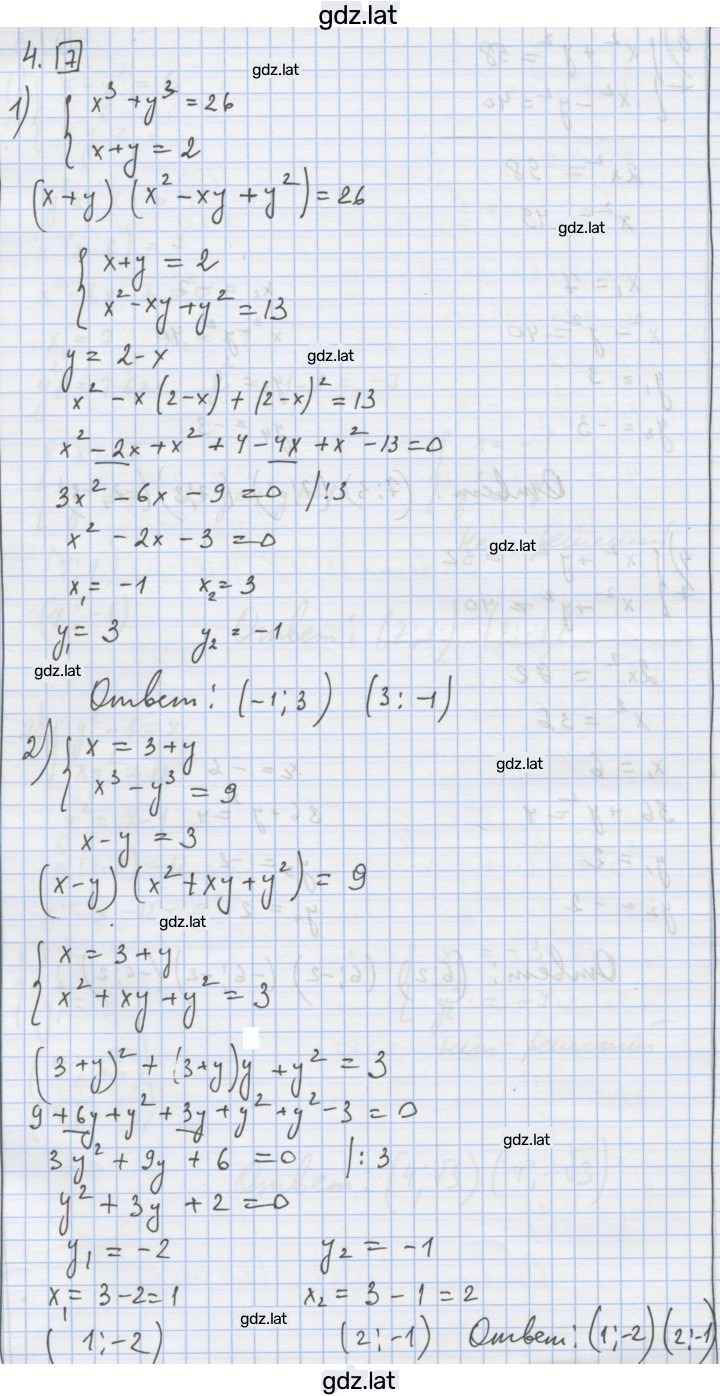 gdz.lat
4. 7
gdz.lat
1) { x³ + y³ = 26
x + y = 2
(x + y) (x² - xy + y²) = 26
gdz.lat
{ x + y = 2
x² - xy + y² = 13
y = 2 - x
gdz.lat
x² - x(2 - x) + (2 - x)² = 13
x² - 2x + x² + 4 - 4x + x² - 13 = 0
3x² - 6x - 9 = 0 /:3
x² - 2x - 3 = 0
gdz.lat
x₁ = -1 x₂ = 3
y₁ = 3 y₂ = -1
gdz.lat
Ответ: (-1; 3) (3; -1)
2) { x = 3 + y
gdz.lat
x³ - y³ = 9
x - y = 3
(x - y) (x² + xy + y²) = 9
gdz.lat
{ x = 3 + y
x² + xy + y² = 3
(3 + y)² + (3 + y)y + y² = 3
9 + 6y + y² + 3y + y² + y² - 3 = 0
gdz.lat
3y² + 9y + 6 = 0 /:3
y² + 3y + 2 = 0
y₁ = -2 y₂ = -1
x₁ = 3 - 2 = 1 x₂ = 3 - 1 = 2
gdz.lat
(1; -2) (2; -1) Ответ: (1; -2) (2; -1)
gdz.lat